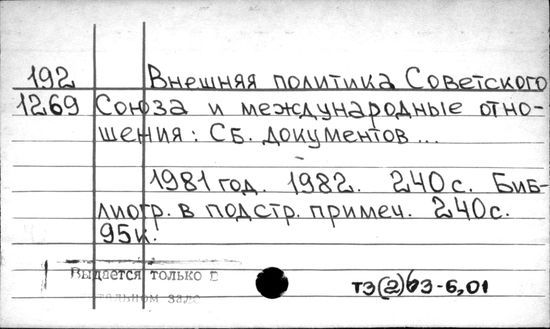 192 Внешняя политика Советского
1269 Союза и международные отно-
шения: Сб. документов...
1981 год. 1982. 240 с. Биб-
лиогр. в подстр. примеч. 240 с.
95к.
Выдается только в
зале
Т3(2)63-6,01